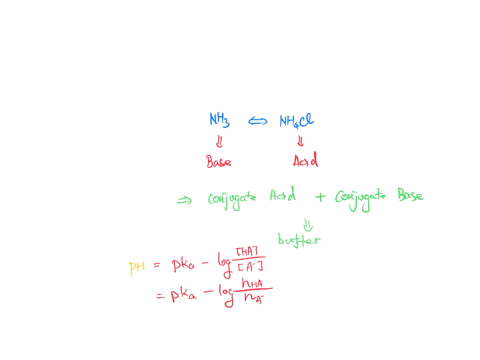 NH₃ ⇔ NH₄Cl
⇓ ⇓
Base Acid
⇒ Conjugate Acid + Conjugate Base
⇓
buffer
pH = pka - log [HA]/[A⁻]
= pka - log nHA/nA⁻